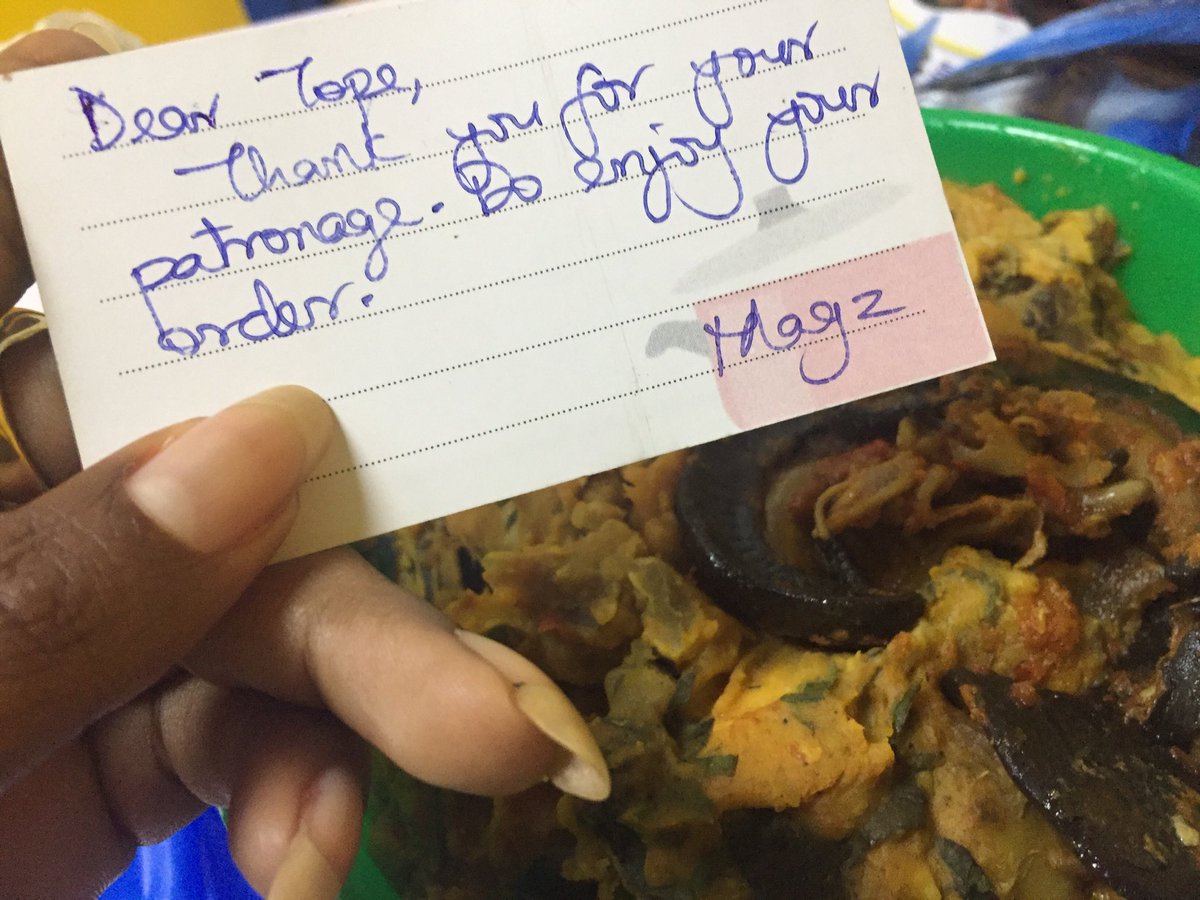 Dear Tope,
Thank you for your
patronage. Do enjoy your
order.
Magz